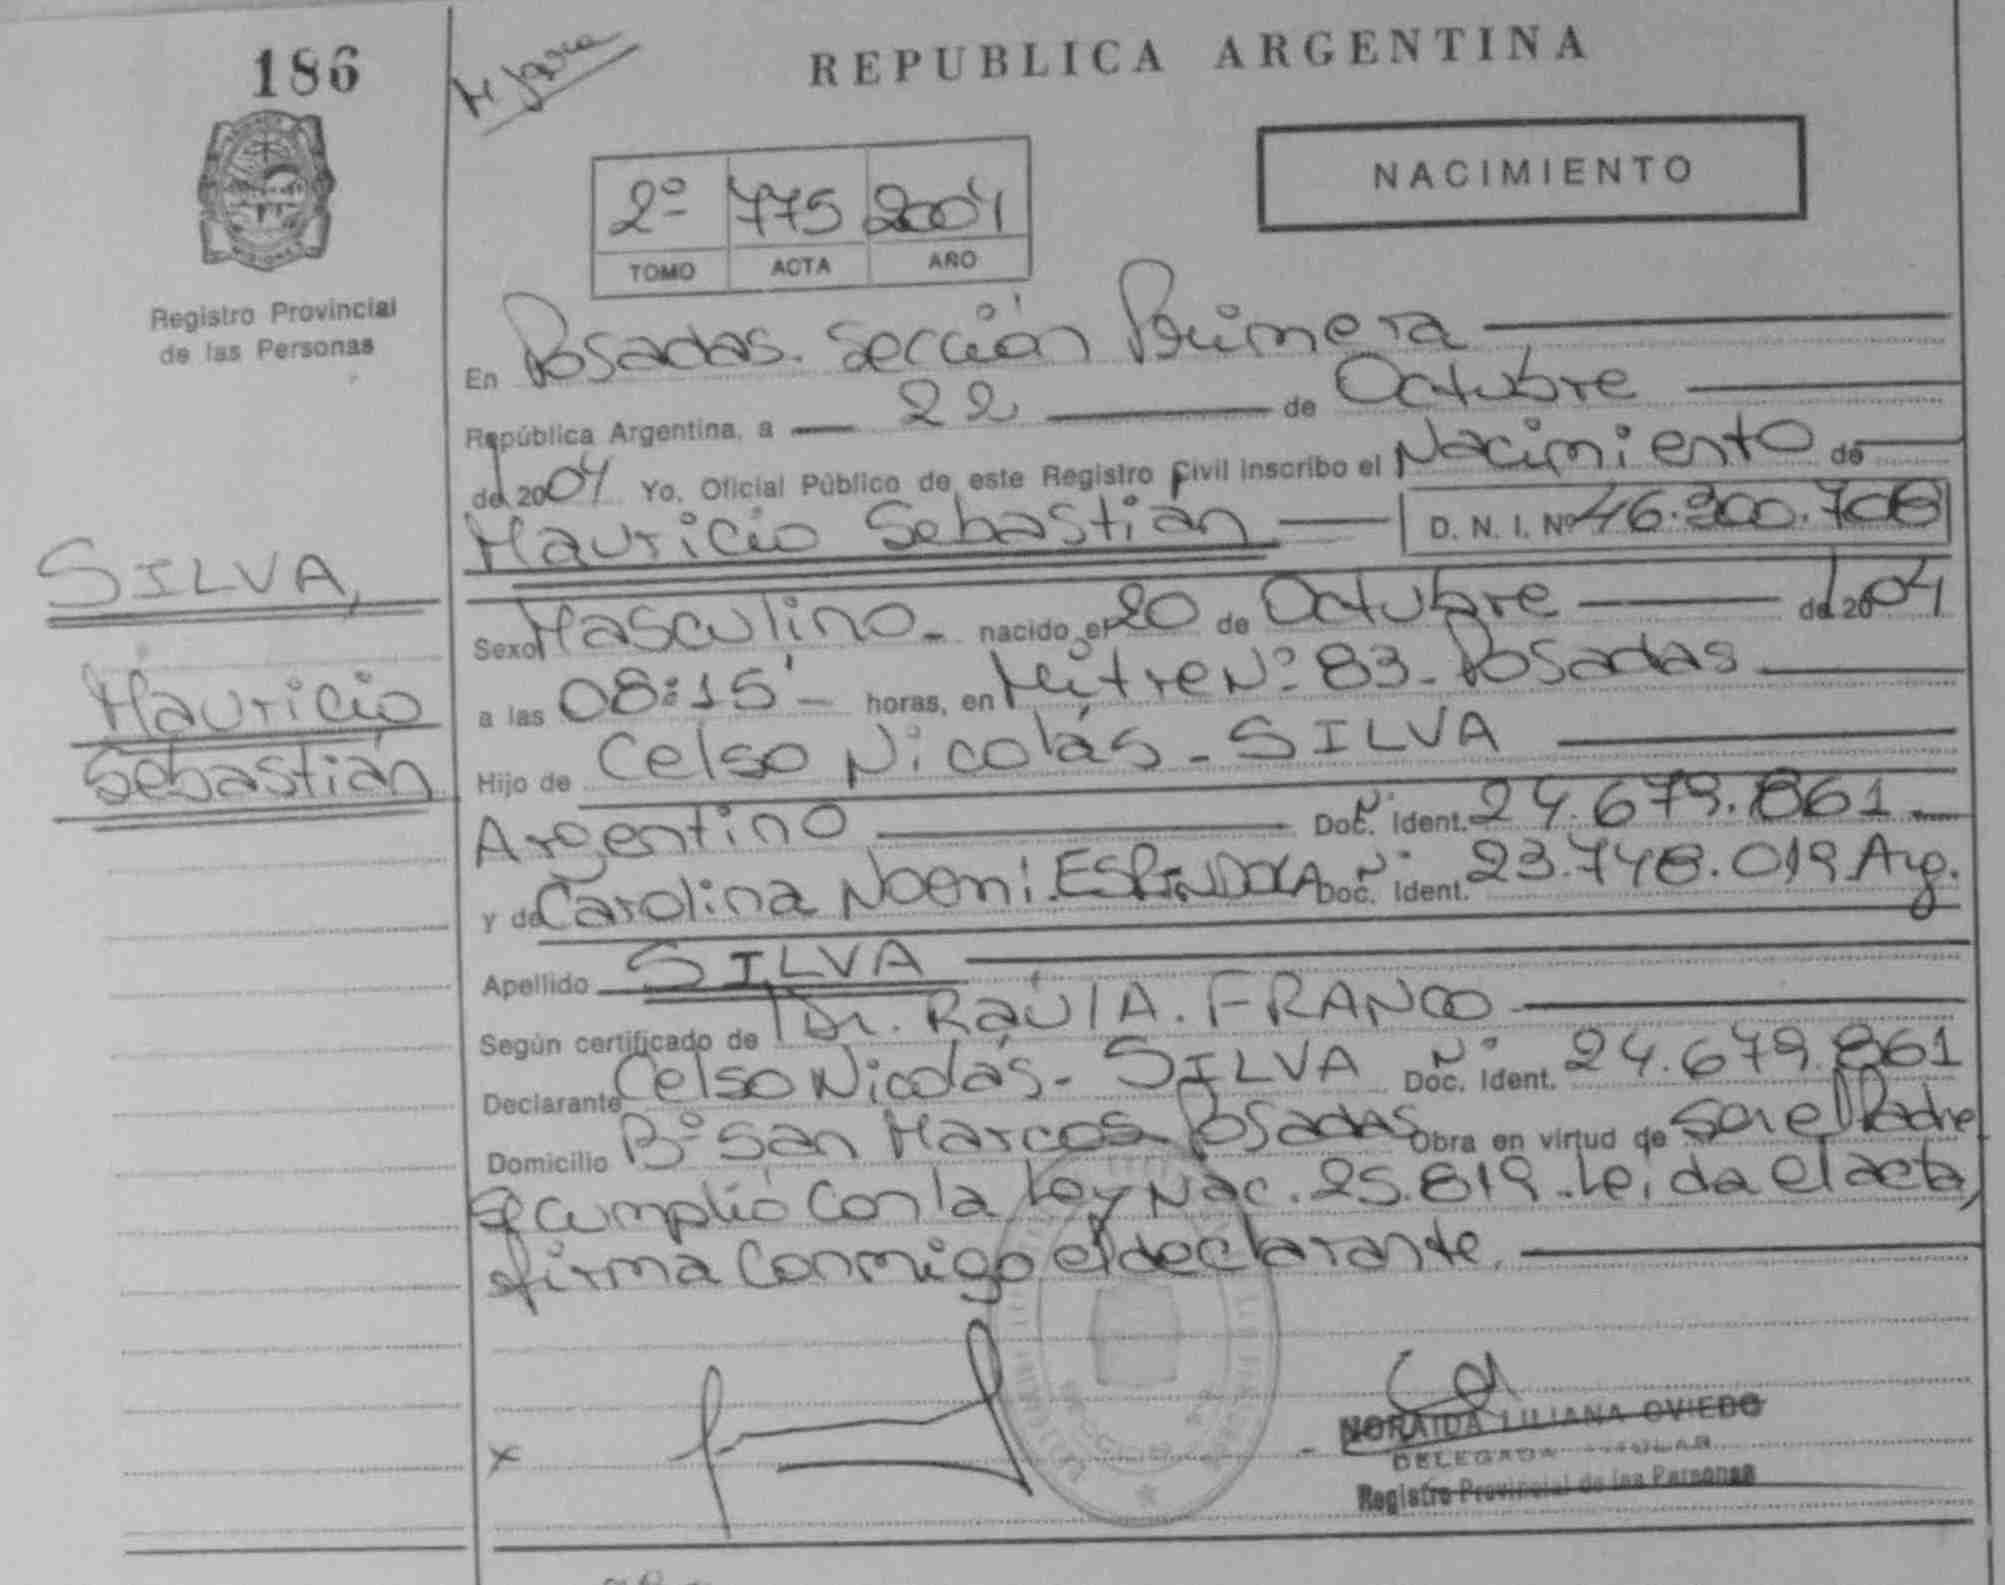 186
REPUBLICA ARGENTINA
NACIMIENTO
2º 775 2004
TOMO ACTA AÑO
Registro Provincial
de las Personas
En Posadas. Sección Primera
República Argentina, a 22 de Octubre
del 2004 Yo, Oficial Público de este Registro Civil inscribo el Nacimiento de
Mauricio Sebastián D. N. I. Nº 46.200.708
SILVA,
Mauricio
Sebastián
Sexo Masculino.- nacido el 20 de Octubre del 2004
a las 08:15' horas, en Mitre Nº 83. Posadas
Hijo de Celso Nicolás - SILVA
Argentino Nº Doc. Ident. 24.679.861
y de Carolina Noemi. ESPINDOLA Nº Doc. Ident. 23.748.019 Arg.
Apellido SILVA
Según certificado de Dr. Raúl A. FRANCO
Declarante Celso Nicolás - SILVA Nº Doc. Ident. 24.679.861
Domicilio Bº San Marcos - Posadas Obra en virtud de ser el Padre
Se cumplió con la Ley Nac. 25.819. Leida el acta,
firma conmigo el declarante.
x
NORAIDA LILIANA OVIEDO
DELEGADA TITULAR
Registro Provincial de las Personas